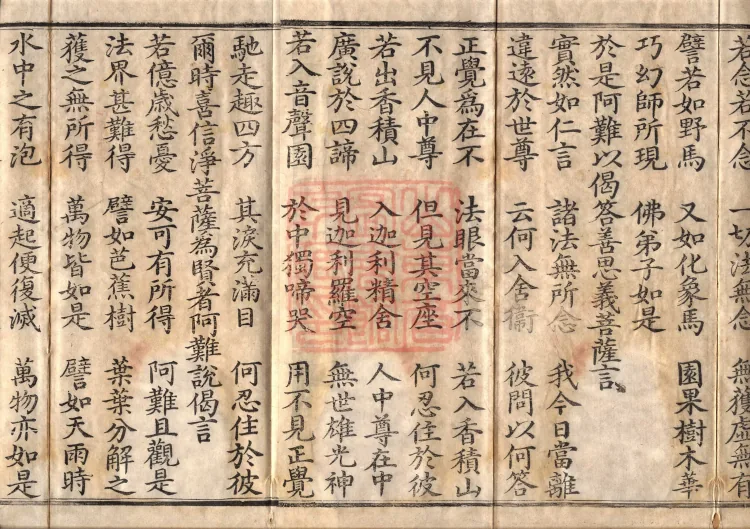 若念若不念 一切法無念 無獲虛無有
譬若如野馬 又如化象馬 園果樹木華
巧幻師所現 佛弟子如是
於是阿難以偈答善思義菩薩言
實然如仁言 諸法無所念 我今日當離
違遠於世尊 云何入舍衛 彼問以何答
正覺為在不 法眼當來不 若入香積山
不見人中尊 但見其空座 何忍住於彼
若出香積山 入迦利精舍 人中尊在中
廣說於四諦 見迦利羅空 無世雄光神
若入音聲園 於中獨啼哭 用不見正覺
馳走趣四方 其淚充滿目 何忍住於彼
爾時喜信淨菩薩為賢者阿難說偈言
若億歲愁憂 安可有所得 阿難且觀是
法界甚難得 譬如芭蕉樹 葉葉分解之
獲之無所得 萬物皆如是 譬如天雨時
水中之有泡 適起便復滅 萬物亦如是